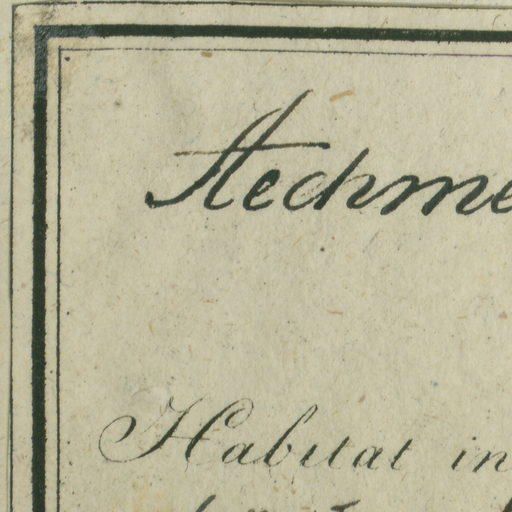 Aechme
Habitat in